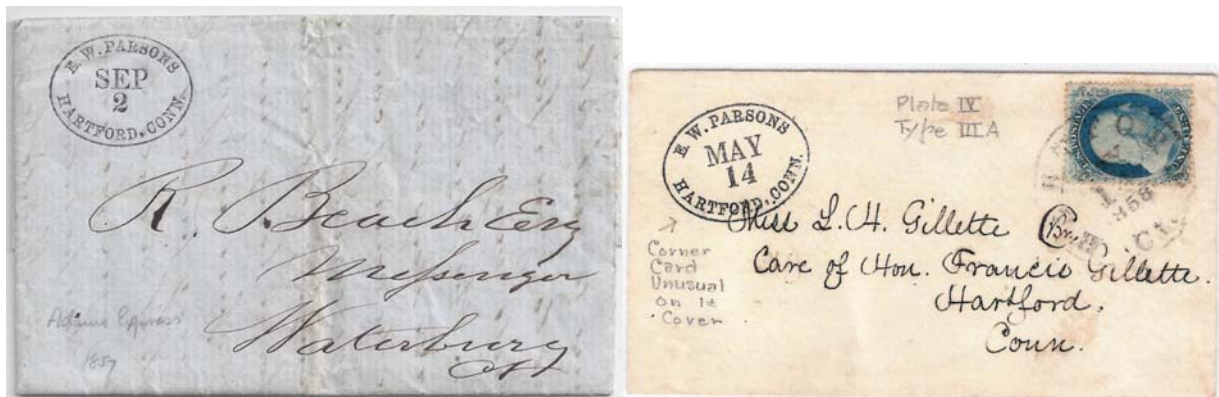 E. W. PARSONS
SEP
2
HARTFORD, CONN.
R. Beach Esq
Messenger
Waterbury
Ct
Adams Express
1857
E. W. PARSONS
MAY
14
HARTFORD, CONN.
Plate IV
Type IIIA
U.S. POSTAGE
ONE CENT
1858
Ct.
Miss L. H. Gillette
Care of Hon. Francis Gillette.
Hartford.
Conn.
Corner
Card
Unusual
on 1¢
Cover